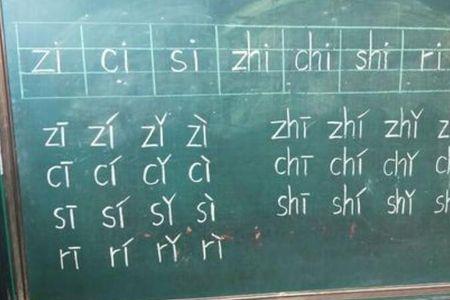 zi ci si zhi chi shi ri
zī zí zǐ zì zhī zhí zhǐ z
cī cí cǐ cì chī chí chǐ c
sī sí sǐ sì shī shí shǐ sh
rī rí rǐ rì